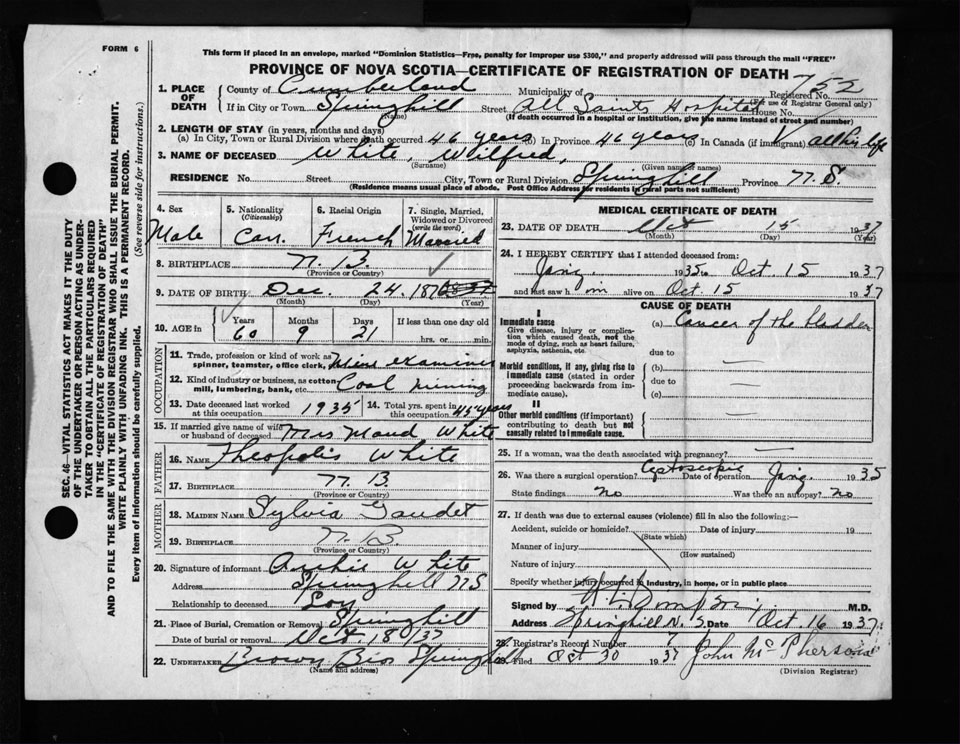 FORM 6
This form if placed in an envelope, marked "Dominion Statistics—Free, penalty for improper use $300," and properly addressed will pass through the mail "FREE"
PROVINCE OF NOVA SCOTIA—CERTIFICATE OF REGISTRATION OF DEATH
752
1. PLACE OF DEATH
County of Cumberland Municipality of Registered No.
(For use of Registrar General only)
If in City or Town Springhill Street All Saints Hospital House No.
(Name) (If death occurred in a hospital or institution, give the name instead of street and number)
2. LENGTH OF STAY (in years, months and days)
(a) In City, Town or Rural Division where death occurred 46 years (b) In Province 46 years. (c) In Canada (if immigrant) all his life
3. NAME OF DECEASED White, Wilfred,
(Surname) (Given name or names)
RESIDENCE No. Street City, Town or Rural Division Springhill Province N.S
(Residence means usual place of abode. Post Office Address for residents in rural parts not sufficient)
4. Sex
Male
5. Nationality (Citizenship)
Can.
6. Racial Origin
French
7. Single, Married, Widowed or Divorced (write the word)
Married
8. BIRTHPLACE N. B.
(Province or Country)
9. DATE OF BIRTH Dec. 24. 1876
(Month) (Day) (Year)
10. AGE in Years Months Days If less than one day old
60 9 21 hrs. or min.
OCCUPATION
11. Trade, profession or kind of work as spinner, teamster, office clerk, Mine examiner
12. Kind of industry or business, as cotton mill, lumbering, bank, etc. Coal mining
13. Date deceased last worked at this occupation 1935
14. Total yrs. spent in this occupation 45 years
15. If married give name of wife or husband of deceased Mrs Maud White
FATHER
16. NAME Theopolis White
17. BIRTHPLACE N B.
(Province or Country)
MOTHER
18. MAIDEN NAME Sylvia Gaudet
19. BIRTHPLACE N. B.
(Province or Country)
20. Signature of informant Archie White
Address Springhill N S
Relationship to deceased Son
21. Place of Burial, Cremation or Removal Springhill
Date of burial or removal Oct. 18 1937
22. UNDERTAKER Brown Bros Springhill
(Name and address)
MEDICAL CERTIFICATE OF DEATH
23. DATE OF DEATH Oct 15 1937
(Month) (Day) (Year)
24. I HEREBY CERTIFY that I attended deceased from:
1935 to Oct. 15 1937
and last saw h im alive on Oct. 15 1937
CAUSE OF DEATH
I
Immediate cause
Give disease, injury or complication which caused death, not the mode of dying, such as heart failure, asphyxia, asthenia, etc.
(a) Cancer of the bladder
due to
Morbid conditions, if any, giving rise to immediate cause (stated in order proceeding backwards from immediate cause).
(b)
due to
(c)
II
Other morbid conditions (if important) contributing to death but not causally related to immediate cause.
25. If a woman, was the death associated with pregnancy?
26. Was there a surgical operation? Date of operation 1935
State findings no Was there an autopsy? no
27. If death was due to external causes (violence) fill in also the following:—
Accident, suicide or homicide? Date of injury 19
(State which)
Manner of injury
(How sustained)
Nature of injury
Specify whether injury occurred in industry, in home, or in public place
Signed by M.D.
Address Springhill N. S. Date Oct. 16 1937
28. Registrar's Record Number 7
29. Filed Oct 30 1937 John McPherson
(Division Registrar)
SEC. 46—VITAL STATISTICS ACT MAKES IT THE DUTY
OF THE UNDERTAKER OR PERSON ACTING AS UNDER-
TAKER TO OBTAIN ALL THE PARTICULARS REQUIRED
IN THE "CERTIFICATE OF REGISTRATION OF DEATH"
AND TO FILE THE SAME WITH THE DIVISION REGISTRAR WHO SHALL ISSUE THE BURIAL PERMIT.
WRITE PLAINLY WITH UNFADING INK. THIS IS A PERMANENT RECORD.
Every item of information should be carefully supplied. (See reverse side for instructions.)